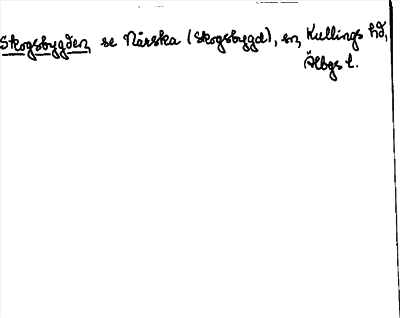 Skogsbygden, se Nårska (Skogsbygd), sn, Kullings hd,
Älbgs l.